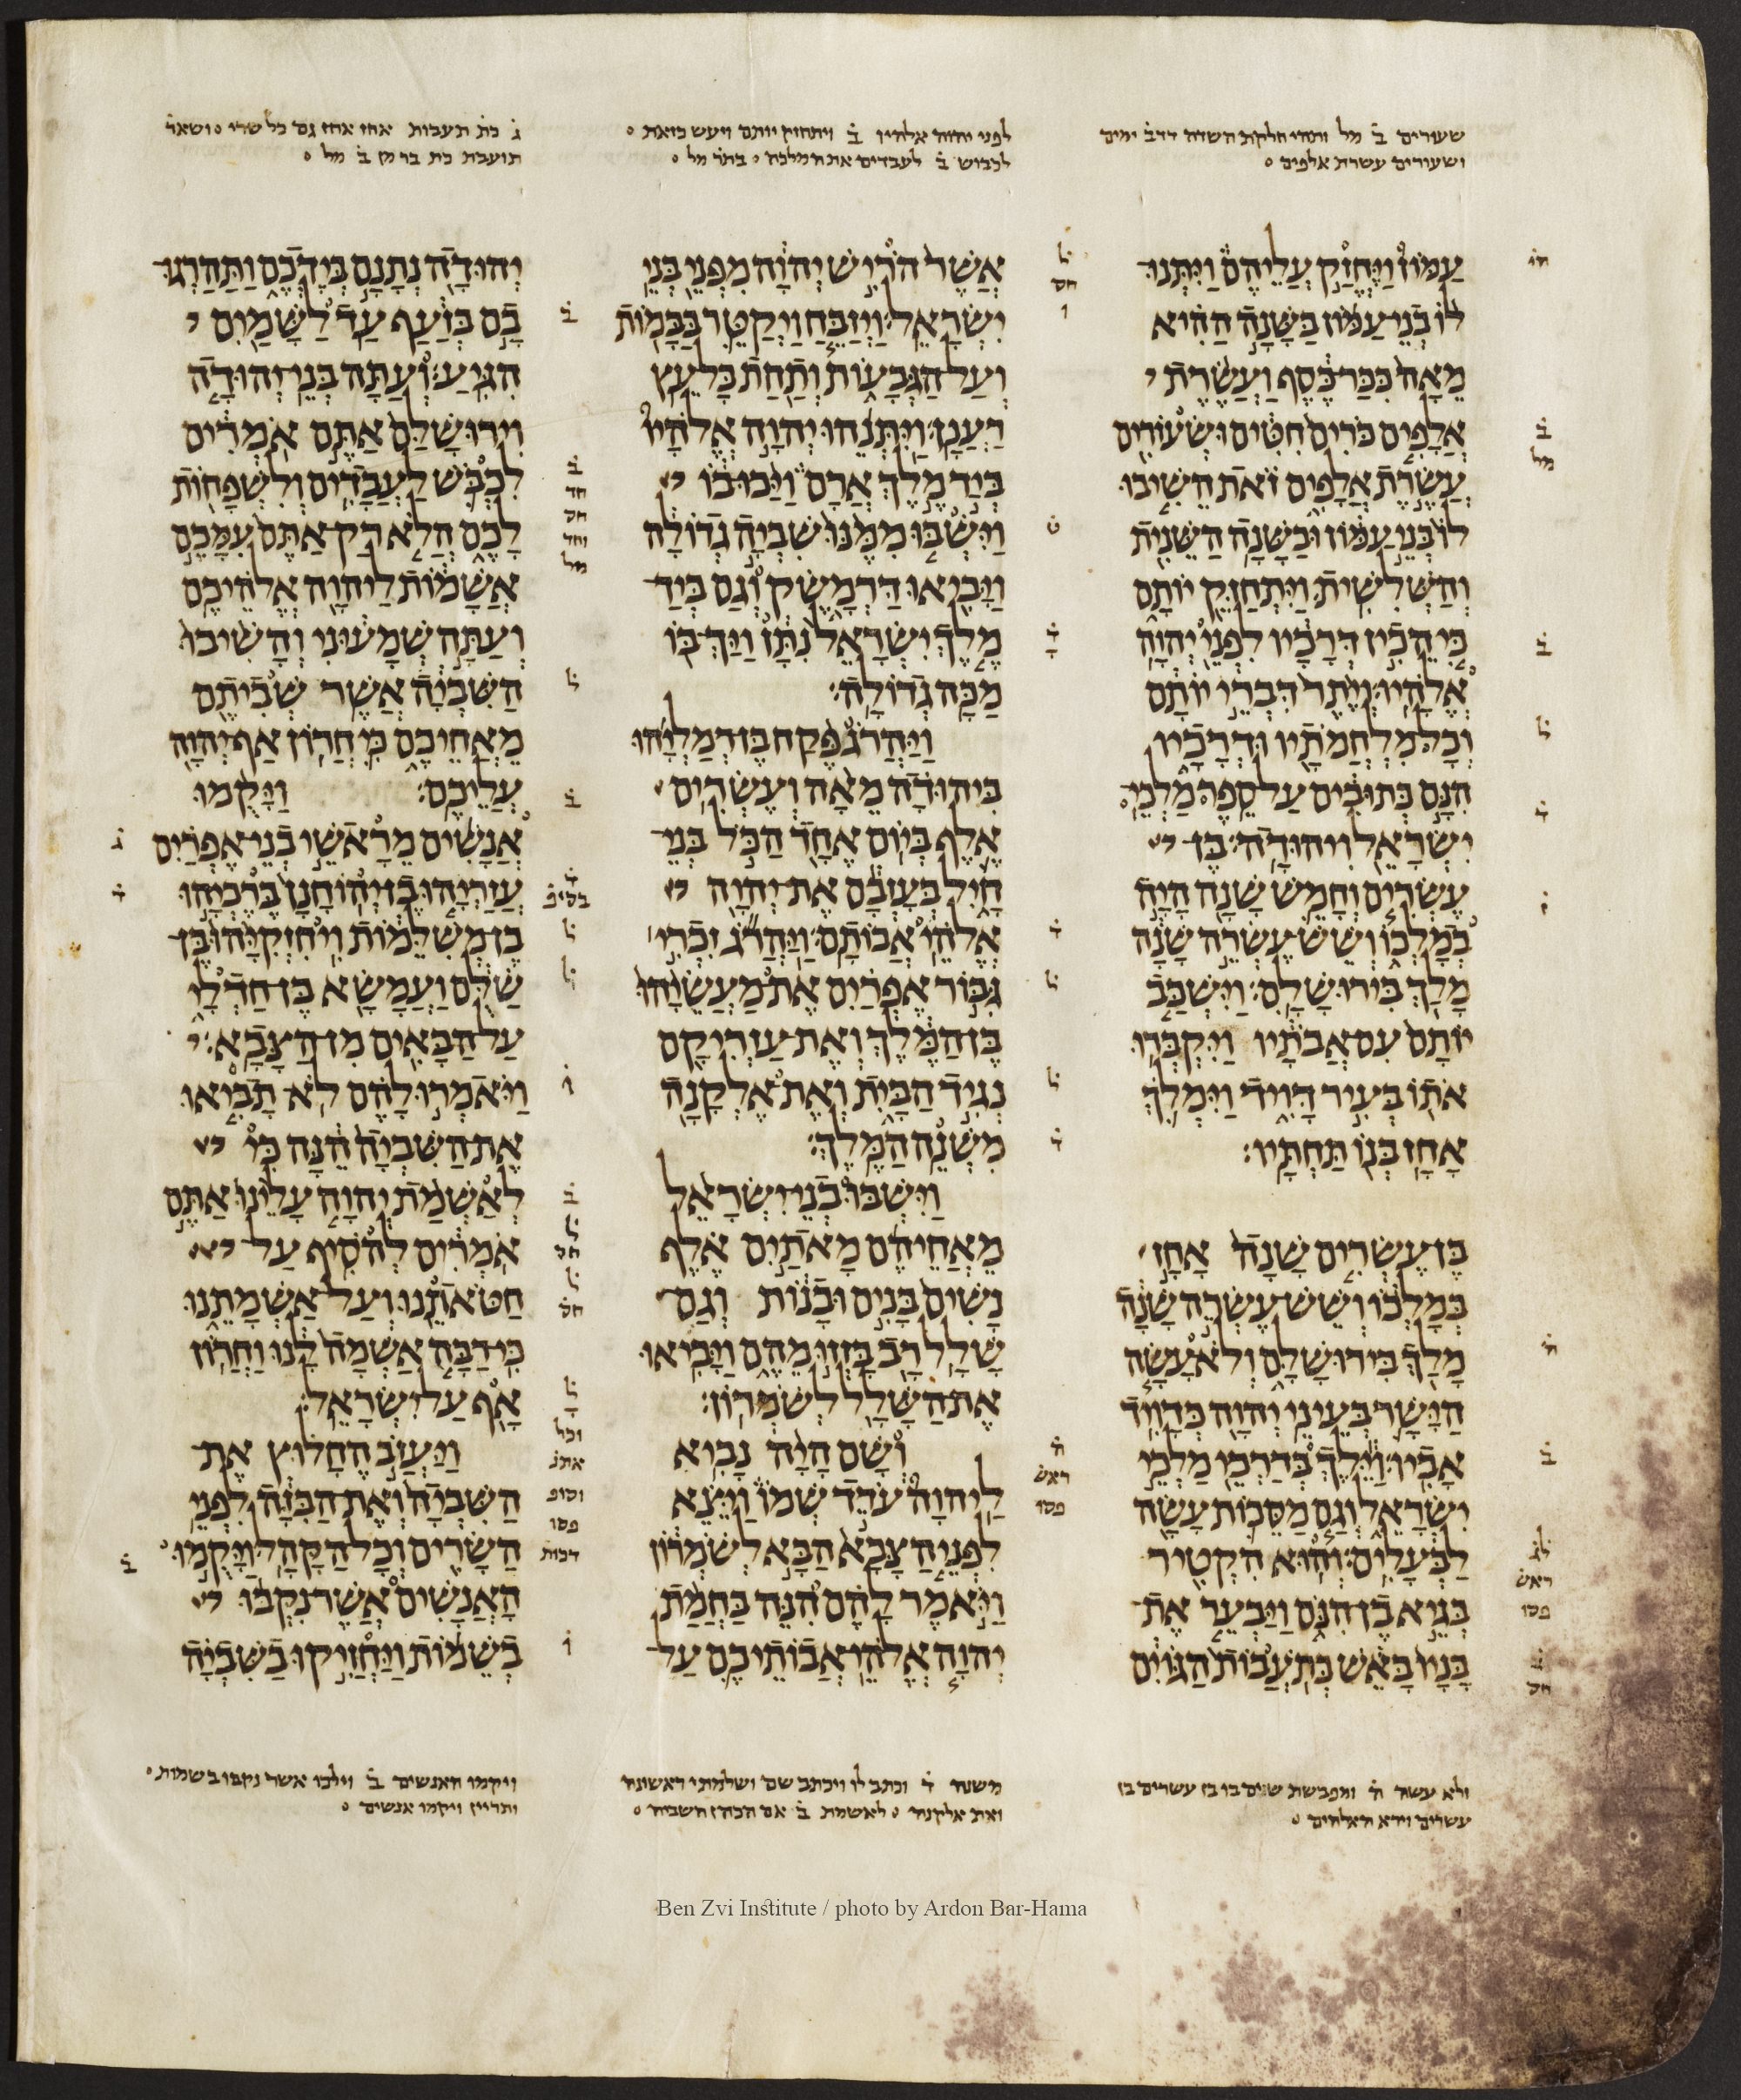 שעורים ב מל ותהי חלקת השדה דדב ימים
ושעורים עשרת אלפים
לפני יהוה אלהיו ב ויתחזק יותם ויעש כזאת
לכבוש ב לעבדים את המלכה בתר מל
ג כת תעבות אחז אחז גם כל שרי ושאר
תועבת כת בר מן ב מל
עַמּוֹן וַיֶּחֱזַק עֲלֵיהֶם וַיִּתְּנוּ
לוֹ בְנֵי עַמּוֹן בַּשָּׁנָה הַהִיא
מֵאָה כִּכַּר כֶּסֶף וַעֲשֶׂרֶת
אֲלָפִים כֹּרִים חִטִּים וּשְׂעוֹרִים
עֲשֶׂרֶת אֲלָפִים זֹאת הֵשִׁיבוּ
לוֹ בְּנֵי עַמּוֹן וּבַשָּׁנָה הַשֵּׁנִית
וְהַשְּׁלִשִׁית׃ וַיִּתְחַזֵּק יוֹתָם
כִּי הֵכִין דְּרָכָיו לִפְנֵי יְהוָה
אֱלֹהָיו׃ וְיֶתֶר דִּבְרֵי יוֹתָם
וְכָל מִלְחֲמֹתָיו וּדְרָכָיו
הִנָּם כְּתוּבִים עַל סֵפֶר מַלְכֵי
יִשְׂרָאֵל וִיהוּדָה׃ בֶּן
עֶשְׂרִים וְחָמֵשׁ שָׁנָה הָיָה
בְמָלְכוֹ וְשֵׁשׁ עֶשְׂרֵה שָׁנָה
מָלַךְ בִּירוּשָׁלִָם׃ וַיִּשְׁכַּב
יוֹתָם עִם אֲבֹתָיו וַיִּקְבְּרוּ
אֹתוֹ בְּעִיר דָּוִיד וַיִּמְלֹךְ
אָחָז בְּנוֹ תַּחְתָּיו׃
בֶּן עֶשְׂרִים שָׁנָה אָחָז
בְּמָלְכוֹ וְשֵׁשׁ עֶשְׂרֵה שָׁנָה
מָלַךְ בִּירוּשָׁלִָם וְלֹא עָשָׂה
הַיָּשָׁר בְּעֵינֵי יְהוָה כְּדָוִיד
אָבִיו׃ וַיֵּלֶךְ בְּדַרְכֵי מַלְכֵי
יִשְׂרָאֵל וְגַם מַסֵּכוֹת עָשָׂה
לַבְּעָלִים׃ וְהוּא הִקְטִיר
בְּגֵיא בֶן הִנֹּם וַיַּבְעֵר אֶת
בָּנָיו בָּאֵשׁ כְּתֹעֲבוֹת הַגּוֹיִם
אֲשֶׁר הֹרִישׁ יְהוָה מִפְּנֵי בְּנֵי
יִשְׂרָאֵל׃ וַיְזַבֵּחַ וַיְקַטֵּר בַּבָּמוֹת
וְעַל הַגְּבָעוֹת וְתַחַת כָּל עֵץ
רַעֲנָן׃ וַיִּתְּנֵהוּ יְהוָה אֱלֹהָיו
בְּיַד מֶלֶךְ אֲרָם וַיַּכּוּ בוֹ
וַיִּשְׁבּוּ מִמֶּנּוּ שִׁבְיָה גְדוֹלָה
וַיָּבִיאוּ דַּרְמָשֶׂק וְגַם בְּיַד
מֶלֶךְ יִשְׂרָאֵל נִתָּן וַיַּךְ בּוֹ
מַכָּה גְדוֹלָה׃
וַיַּהֲרֹג פֶּקַח בֶּן רְמַלְיָהוּ
בִּיהוּדָה מֵאָה וְעֶשְׂרִים
אֶלֶף בְּיוֹם אֶחָד הַכֹּל בְּנֵי
חָיִל בְּעָזְבָם אֶת יְהוָה
אֱלֹהֵי אֲבוֹתָם׃ וַיַּהֲרֹג זִכְרִי
גִּבּוֹר אֶפְרַיִם אֶת מַעֲשֵׂיָהוּ
בֶּן הַמֶּלֶךְ וְאֶת עַזְרִיקָם
נְגִיד הַבָּיִת וְאֶת אֶלְקָנָה
מִשְׁנֵה הַמֶּלֶךְ׃
וַיִּשְׁבּוּ בְנֵי יִשְׂרָאֵל
מֵאֲחֵיהֶם מָאתַיִם אֶלֶף
נָשִׁים בָּנִים וּבָנוֹת וְגַם
שָׁלָל רָב בָּזְזוּ מֵהֶם וַיָּבִיאוּ
אֶת הַשָּׁלָל לְשֹׁמְרוֹן׃
וְשָׁם הָיָה נָבִיא
לַיהוָה עֹדֵד שְׁמוֹ וַיֵּצֵא
לִפְנֵי הַצָּבָא הַבָּא לְשֹׁמְרוֹן
וַיֹּאמֶר לָהֶם הִנֵּה בַּחֲמַת
יְהוָה אֱלֹהֵי אֲבוֹתֵיכֶם עַל
יְהוּדָה נְתָנָם בְּיֶדְכֶם וַתַּהַרְגוּ
בָם בְּזַעַף עַד לַשָּׁמַיִם
הִגִּיעַ׃ וְעַתָּה בְּנֵי יְהוּדָה
וִירוּשָׁלִַם אַתֶּם אֹמְרִים
לִכְבֹּשׁ לַעֲבָדִים וְלִשְׁפָחוֹת
לָכֶם הֲלֹא רַק אַתֶּם עִמָּכֶם
אֲשָׁמוֹת לַיהוָה אֱלֹהֵיכֶם
וְעַתָּה שְׁמָעוּנִי וְהָשִׁיבוּ
הַשִּׁבְיָה אֲשֶׁר שְׁבִיתֶם
מֵאֲחֵיכֶם כִּי חֲרוֹן אַף יְהוָה
עֲלֵיכֶם׃ וַיָּקֻמוּ
אֲנָשִׁים מֵרָאשֵׁי בְנֵי אֶפְרַיִם
עֲזַרְיָהוּ בֶן יְהוֹחָנָן בֶּרֶכְיָהוּ
בֶן מְשִׁלֵּמוֹת וִיחִזְקִיָּהוּ בֶּן
שַׁלֻּם וַעֲמָשָׂא בֶּן חַדְלָי
עַל הַבָּאִים מִן הַצָּבָא׃
וַיֹּאמְרוּ לָהֶם לֹא תָבִיאוּ
אֶת הַשִּׁבְיָה הֵנָּה כִּי
לְאַשְׁמַת יְהוָה עָלֵינוּ אַתֶּם
אֹמְרִים לְהֹסִיף עַל
חַטֹּאתֵנוּ וְעַל אַשְׁמָתֵנוּ
כִּי רַבָּה אַשְׁמָה לָנוּ וַחֲרוֹן
אָף עַל יִשְׂרָאֵל׃
וַיַּעֲזֹב הֶחָלוּץ אֶת
הַשִּׁבְיָה וְאֶת הַבִּזָּה לִפְנֵי
הַשָּׂרִים וְכָל הַקָּהָל׃ וַיָּקֻמוּ
הָאֲנָשִׁים אֲשֶׁר נִקְּבוּ
בְשֵׁמוֹת וַיַּחֲזִיקוּ בַשִּׁבְיָה
ולא עשה ה ומפבשת שנים בו בן עשרים בן
עשרים וירא האלהים
משנה ד וכתב לו ויכתב שם ושלמתי ראשונה
ואת אלקנה לאשמת ב אם הכהן השביה
ויקמו האנשים ב וילכו אשר נקבו בשמות
ותריין ויקמו אנשים
Ben Zvi Institute / photo by Ardon Bar-Hama